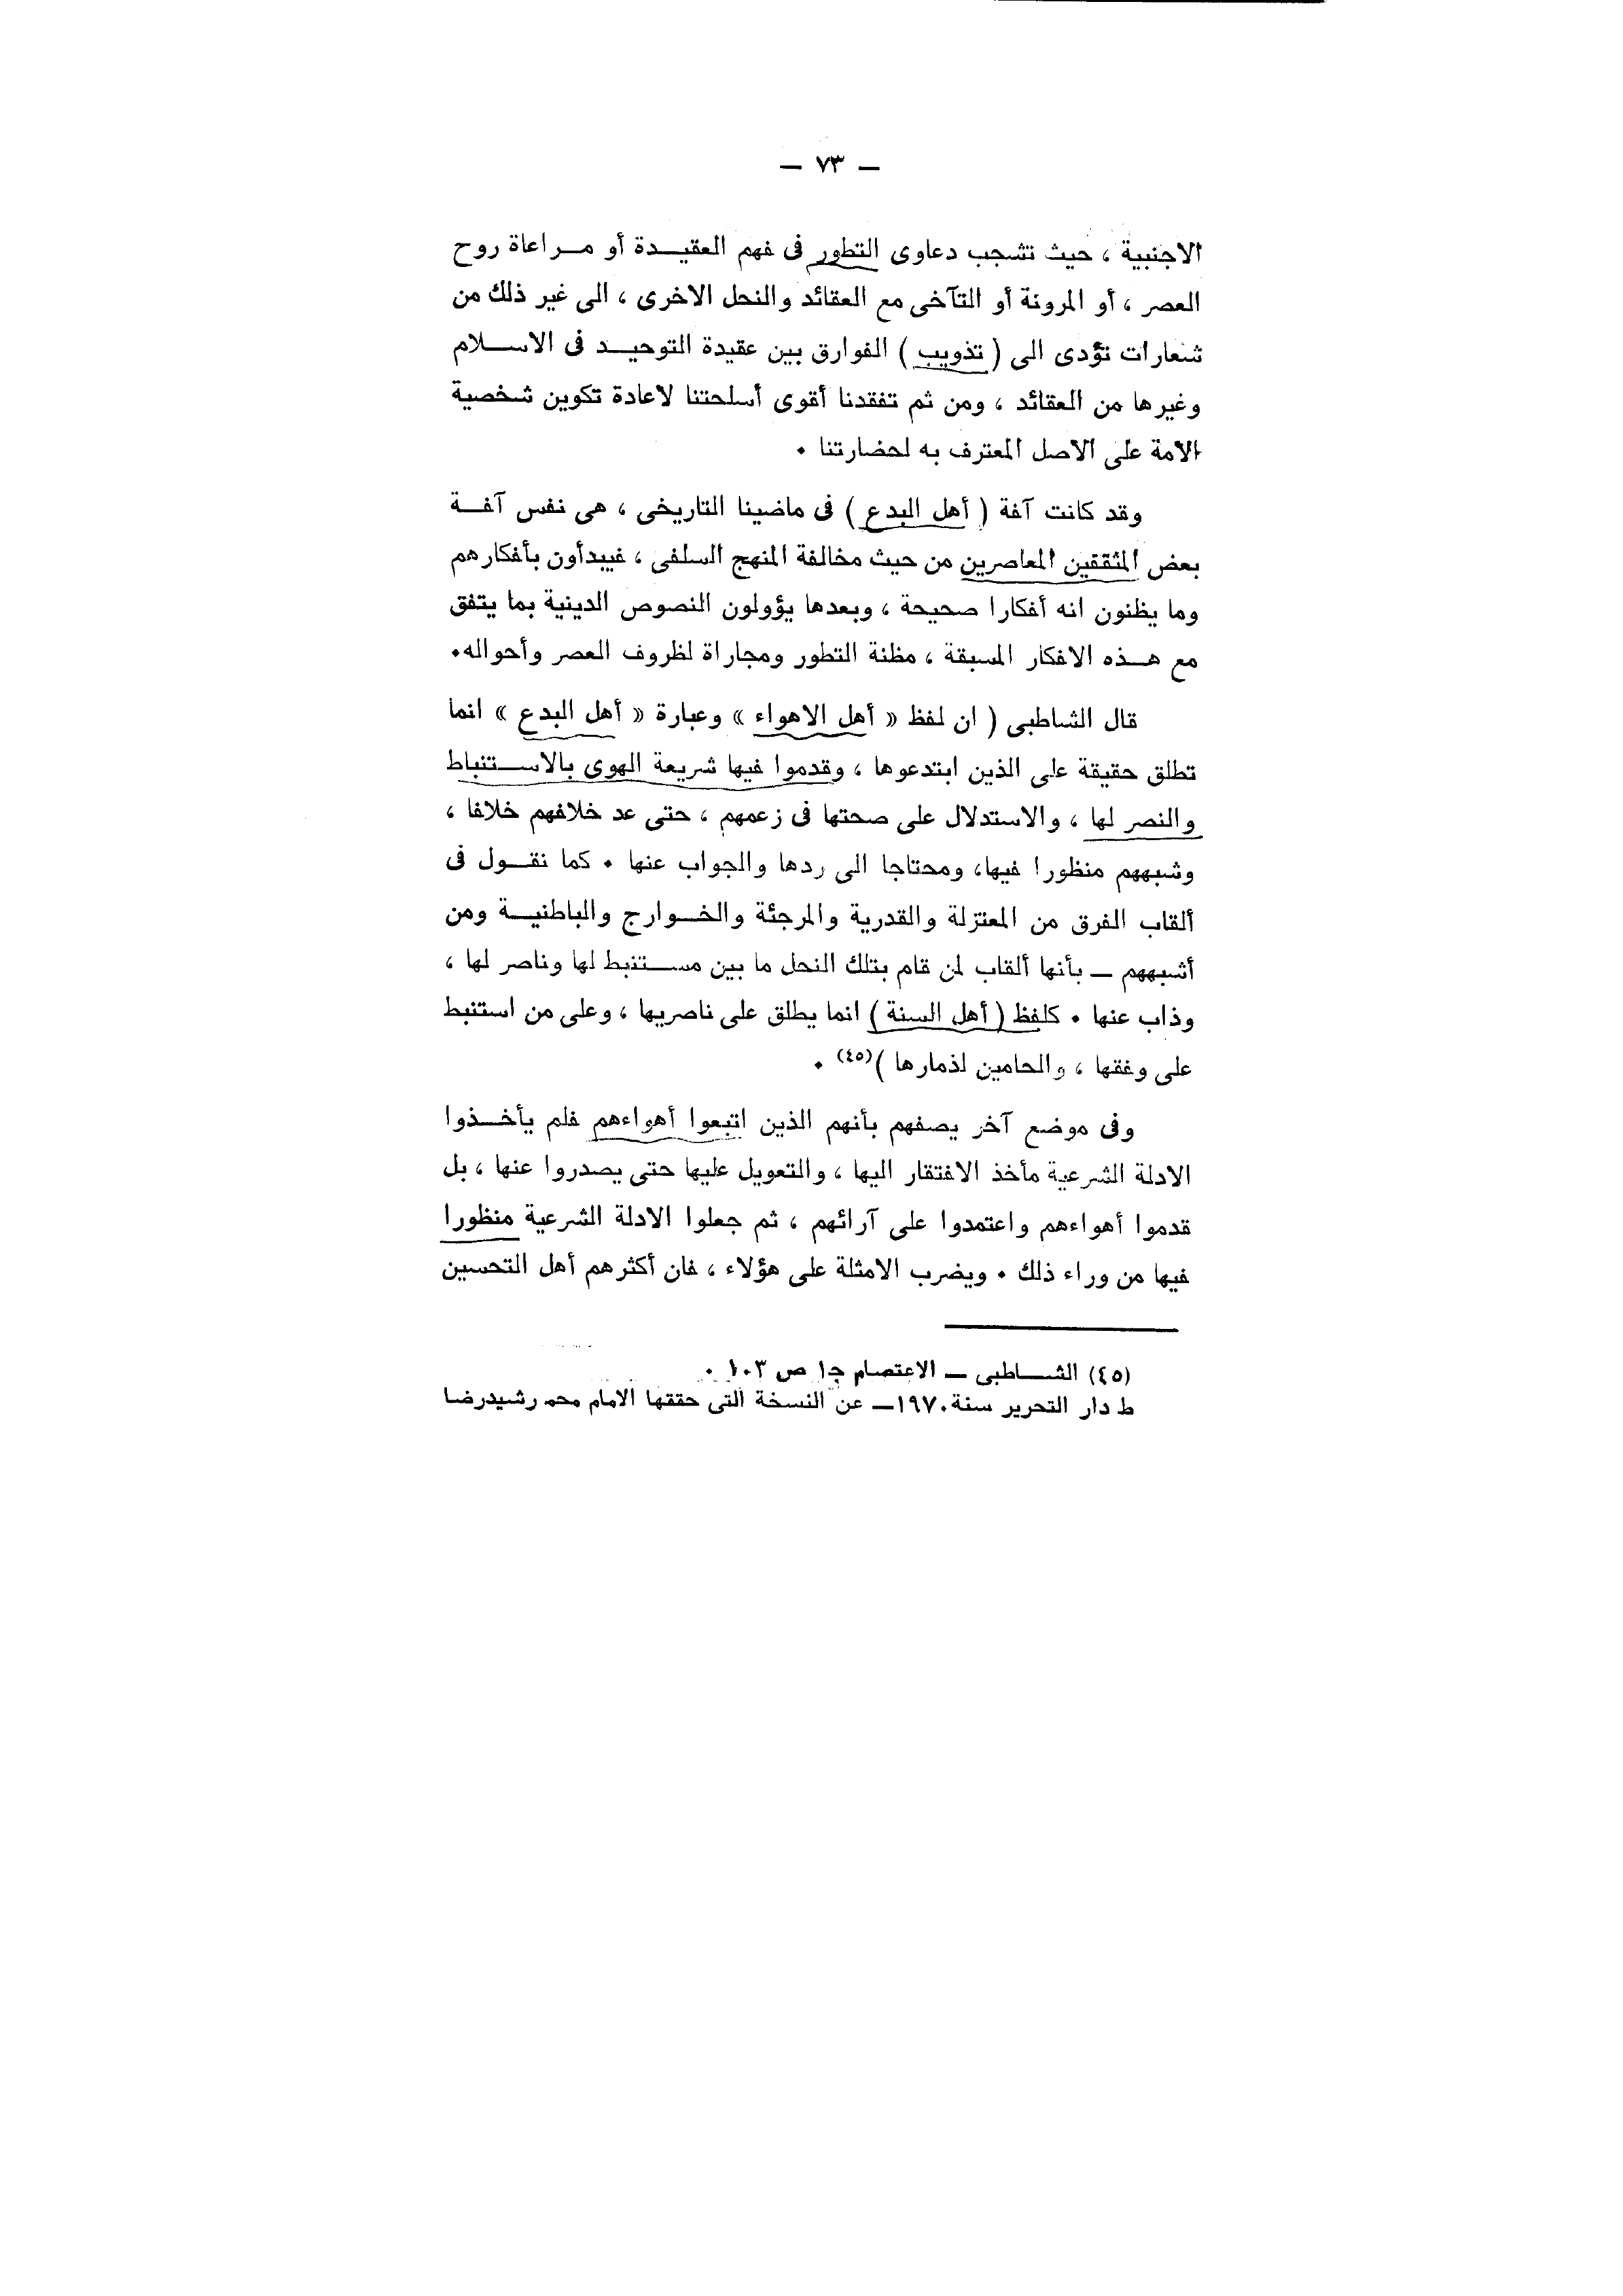 — ٧٣ —
الاجنبية ، حيث تشجب دعاوى التطور فى فهم العقيدة أو مراعاة روح
العصر ، أو المرونة أو التآخى مع العقائد والنحل الاخرى ، الى غير ذلك من
شعارات تؤدى الى ( تذويب ) الفوارق بين عقيدة التوحيد فى الاسلام
وغيرها من العقائد ، ومن ثم تفقدنا أقوى أسلحتنا لاعادة تكوين شخصية
الامة على الاصل المعترف به لحضارتنا ٠
وقد كانت آفة ( أهل البدع ) فى ماضينا التاريخى ، هى نفس آفة
بعض المثقفين المعاصرين من حيث مخالفة المنهج السلفى ، فيبدأون بأفكارهم
وما يظنون انه أفكارا صحيحة ، وبعدها يؤولون النصوص الدينية بما يتفق
مع هذه الافكار المسبقة ، مظنة التطور ومجاراة لظروف العصر وأحواله٠
قال الشاطبى ( ان لفظ « أهل الاهواء » وعبارة « أهل البدع » انما
تطلق حقيقة على الذين ابتدعوها ، وقدموا فيها شريعة الهوى بالاستنباط
والنصر لها ، والاستدلال على صحتها فى زعمهم ، حتى عد خلافهم خلافا ،
وشبههم منظورا فيها، ومحتاجا الى ردها والجواب عنها ٠ كما نقول فى
ألقاب الفرق من المعتزلة والقدرية والمرجئة والخوارج والباطنية ومن
أشبههم — بأنها ألقاب لمن قام بتلك النحل ما بين مستنبط لها وناصر لها ،
وذاب عنها ٠ كلفظ ( أهل السنة ) انما يطلق على ناصريها ، وعلى من استنبط
على وفقها ، والحامين لذمارها )(٤٥) ٠
وفى موضع آخر يصفهم بأنهم الذين اتبعوا أهواءهم فلم يأخذوا
الادلة الشرعية مأخذ الافتقار اليها ، والتعويل عليها حتى يصدروا عنها ، بل
قدموا أهواءهم واعتمدوا على آرائهم ، ثم جعلوا الادلة الشرعية منظورا
فيها من وراء ذلك ٠ ويضرب الامثلة على هؤلاء ، فان أكثرهم أهل التحسين
(٤٥) الشاطبى — الاعتصام ج١ ص ١٠٣ ٠
ط دار التحرير سنة ١٩٧٠ — عن النسخة التى حققها الامام محمد رشيدرضا